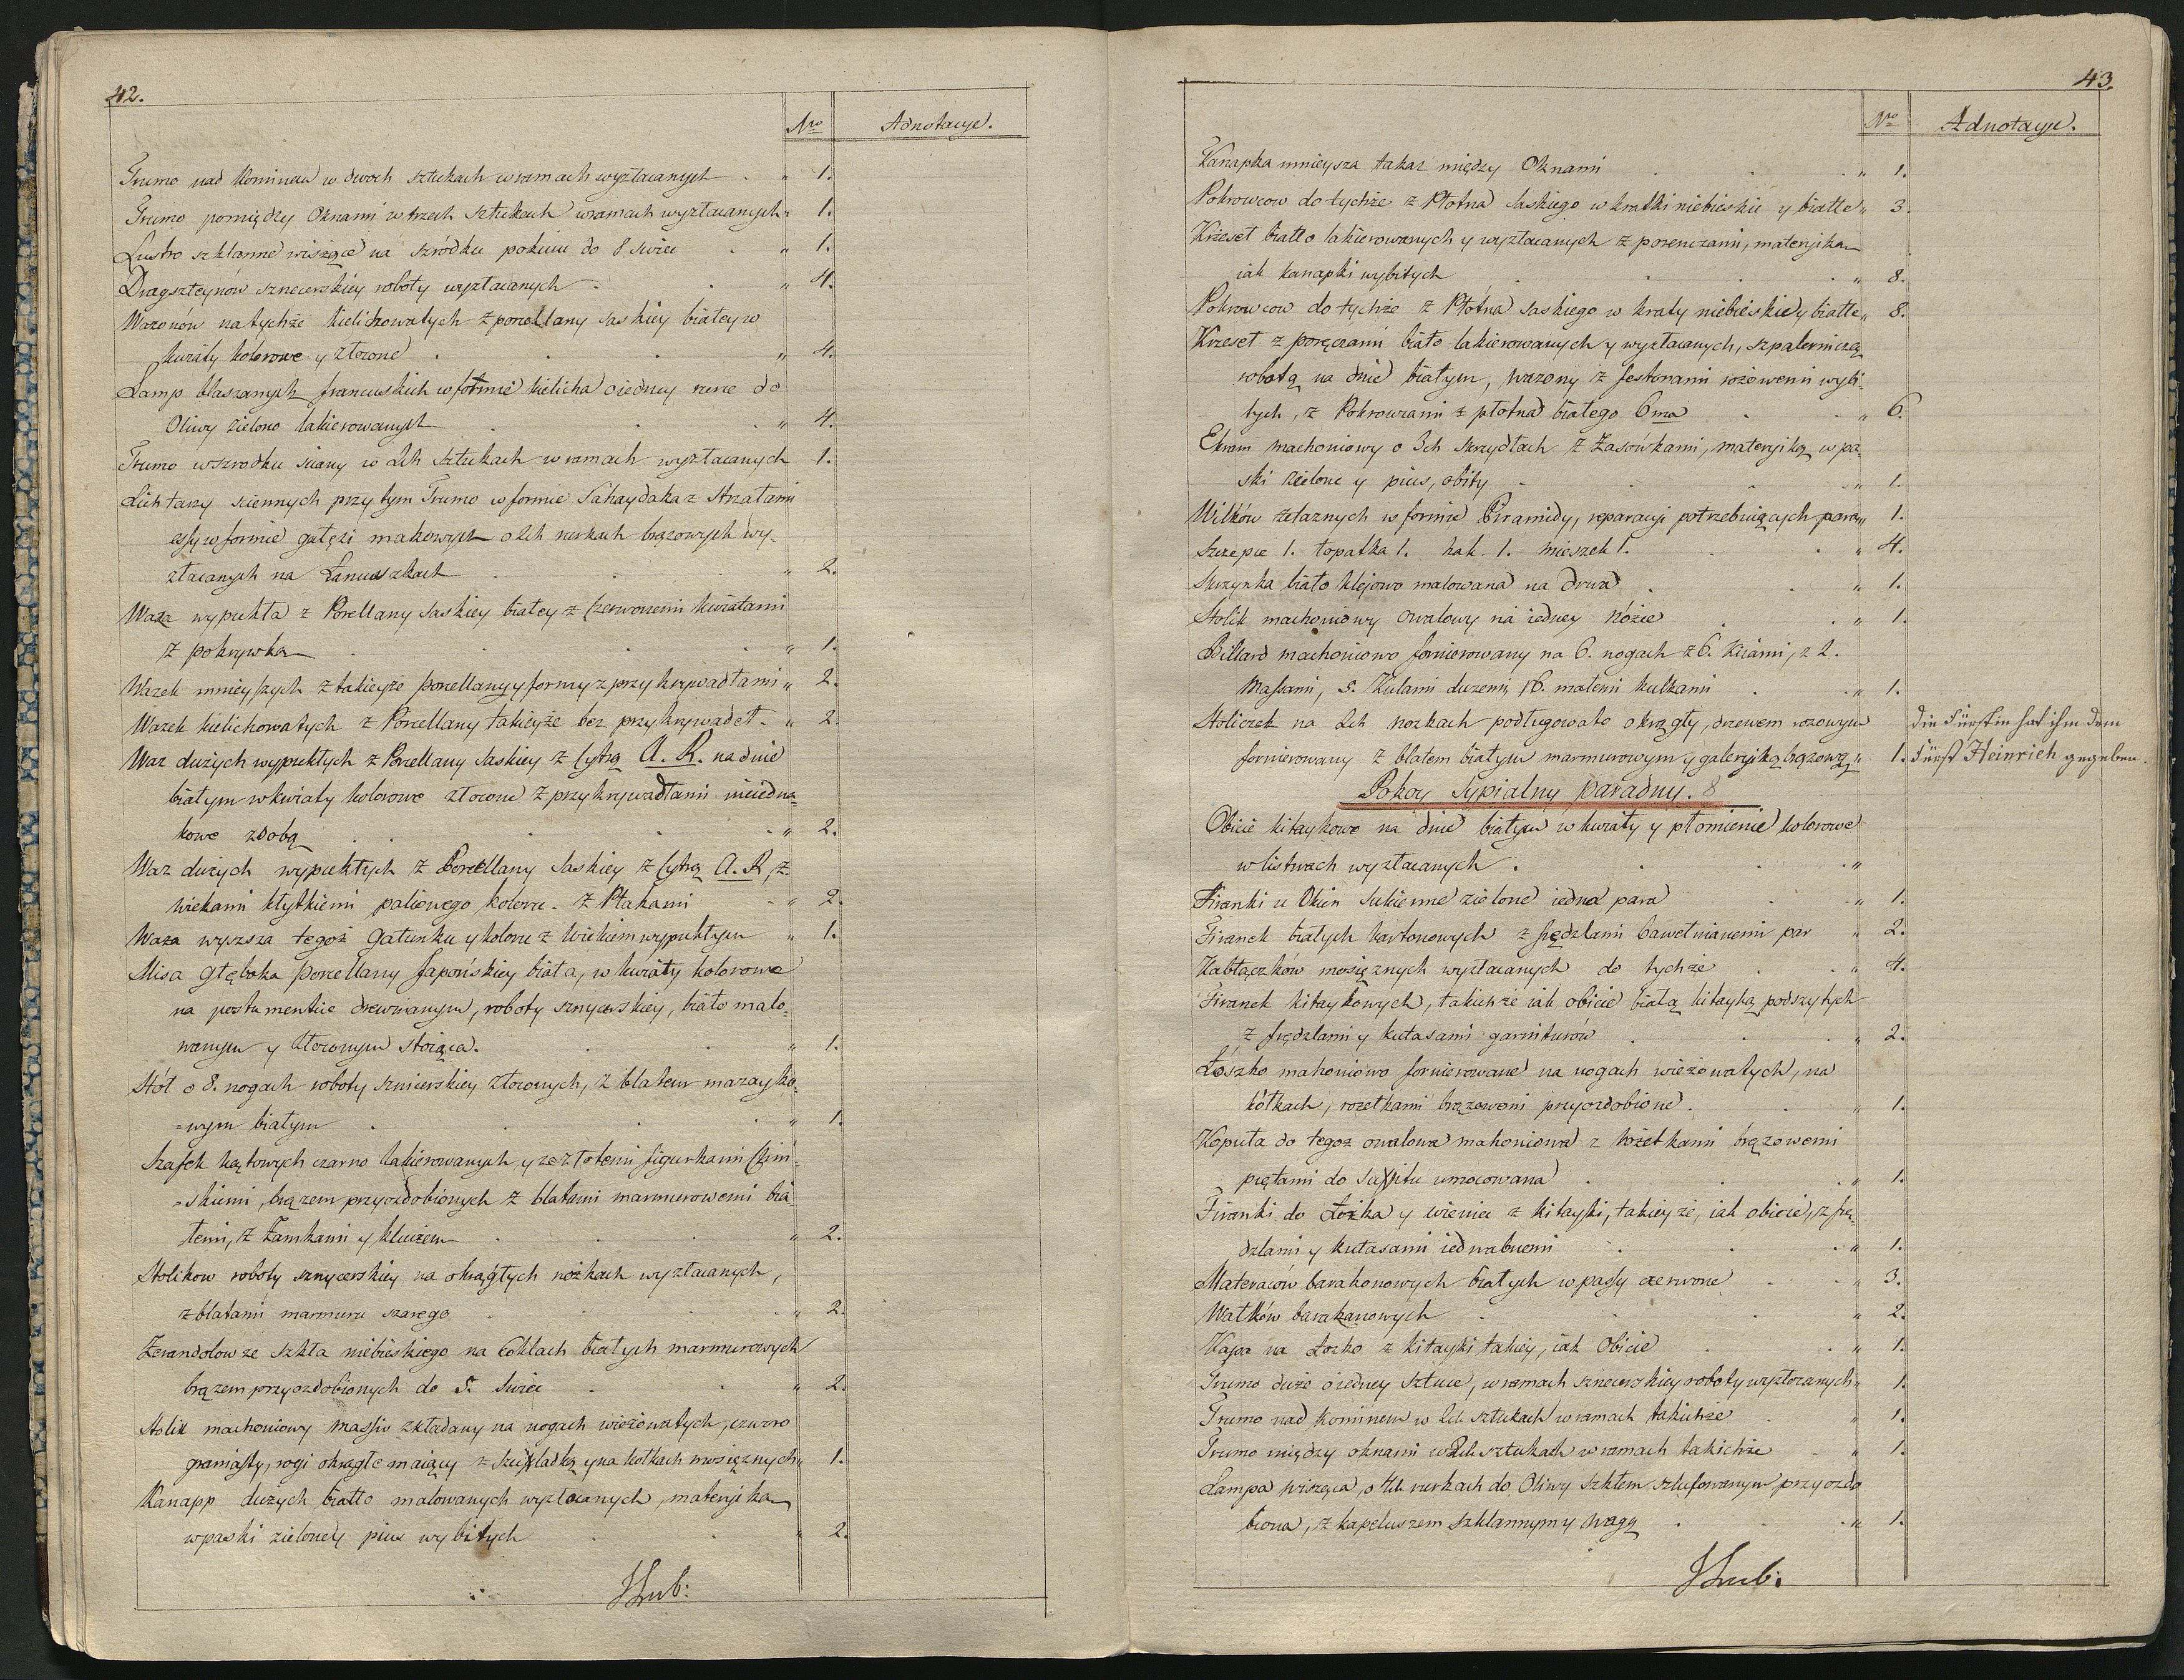 42.
Nro Adnotacye.
Trumo nad kominem w dwoch sztukach w ramach wyzłacanych . " 1.
Trumo pomiędzy Oknami w trzech sztukach w ramach wyzłacanych " 1.
Lustro szklanne wiszące na szródku pokoiu do 8 swiec . " 1.
Dragszteynów sznecerskiey roboty wyzłacanych . . " 4.
Wazonów na tychże kielichowatych z porcellany saskiey białey w
kwiaty kolorowe y złocone . . . " 4.
Lamp blaszanych francuskich w formie kielicha o iedney rurce do
Oliwy zielono lakierowanych . . " 4.
Trumo wszrodku sciany w 2ch sztukach w ramach wyzłacanych 1.
Lichtarzy sciennych przy tym Trumo w formie Sahaydaka z Strzałami
assy w formie gałęzi makowych o 2ch rurkach brązowych wy-
złacanych na Łancuszkach . . . " 2.
Waza wypukła z Porcellany saskiey białey z Czerwonemi kwiatami
z pokrywką . . . . " 1.
Wazek mnieyszych z takieyże porcellany y formy z przykrywadłami " 2.
Wazek kielichowatych z Porcellany takieyże bez przykrywadeł . " 2.
Waz dużych wypukłych z Porcellany saskiey z Cyfrą A. R. na dnie
białym w kwiaty kolorowe złocone z przykrywadłami nieiedna-
kowo zdobą . . . " 2.
Waz dużych wypukłych z Porcellany Saskiey z Cyfrą A. R, z-
wiekami kłytkiemi paliowego koloru . z Ptakami . " 2.
Waza wyzsza tegoż Gatunku y koloru z wiekiem wypukłym " 1.
Misa głęboka porcellany Japońskiey biała, w kwiaty kolorowe
na postumencie drewnianym, roboty sznycerskiey, biało malo-
wanym y złoconym stoiąca . . . " 1.
Stół o 8. nogach roboty sznicerskiey złoconych, z blatem mozayko-
=wym białym . . . . " 1.
Szafek kątowych czarno lakierowanych y ze złotemi figurkami Chin-
=skiemi, brązem przyozdobionych z blatami marmurowemi bia-
łemi, z Zamkami y kluczem . . . " 2.
Stolikow roboty sznycerskiey na okrągłych nóżkach wyzłacanych,
z blatami marmuru szarego . . . " 2.
Zerandolow ze szkła niebieskiego na Coklach białych marmurowych
brązem przyozdobionych do 5. Swiec . . " 2.
Stolik machoniowy massiv zkładany na nogach wieżowatych, czworo
graniasty, rogi okrągłe maiący z szufladką y na kołkach mosiężnych " 1.
Kanapp dużych biało malowanych wyzłacanych, materyiką
w paski zielone y pius wybitych . . " 2.
43.
Nro Adnotacye.
Kanapka mnieysza takaż między Oknami . . . " 1.
Pokrowcow do tychże z Płotna saskiego w kratki niebieskie y białe " 3.
Krzeseł biało lakierowanych y wyzłacanych z porenczami, materyiką
iak kanapki wybitych . . . . " 8.
Pokrowcow do tychże z Płótna saskiego w kraty niebieskie y białe " 8.
Krzeseł z poręczami biało lakierowanych y wyzłacanych, szpalerniczą
robotą na dnie białym, wazony z festonami rożowemi wybi-
tych, z Pokrowcami z płotna białego 6ma . . " 6.
Ekran machoniowy o 3ch skrzydłach z Zasówkami, materyiką w pa-
ski zielone y pius, obity . . . " 1.
Wilków żelaznych w formie Piramidy, reparacyi potrzebuiących para " 1.
Szczepce 1. łopatka 1. hak . 1. mieszek 1. . . " 4.
Skrzynka biało klejowo malowana na drwa . . " 1.
Stolik machoniowy owalowy na iedney nóżce . . " 1.
Billard machoniowo fornierowany na 6. nogach z 6. Kiiami, z 2.
Massami, 5. Kulami dużemi, 16. małemi kulkami . " 1.
Stoliczek na 2ch nozkach podługowato okrągły, drzewem rozowym
fornierowany z blatem białym marmurowym y galeryiką brązową " 1.
die Fürstin hat ihm dem
Fürst Heinrich gegeben.
Pokoy Sypialny paradny. 8
Obicie kitaykowe na dnie białym w kwiaty y płomienie kolorowe
w listwach wyzłacanych . . . "
Firanki u Okien sukienne zielone iedna para . " 1.
Firanek białych kartonowych z frędzlami bawełnianemi par " 2.
Kabłączków mosiężnych wyzłacanych do tychże . " 4.
Firanek kitaykowych, takichże iak obicie białą kitayką podszytych
z frędzlami y kutasami garniturów . . " 2.
Łószko mahoniowo fornierowane na nogach wieżowatych, na
kółkach, rozetkami brązowemi przyozdobione . . " 1.
Kopuła do tegoż owalowa mahoniowa z Rozetkami brązowemi
prętami do sufitu umocowana . . . " 1.
Firanki do Łóżka y wieniec z kitayki, takieyże, iak obicie, z frę-
dzlami y kutasami iedwabnemi . . " 1.
Materaców barakonowych białych w passy czerwone . " 3.
Wałków barakanowych . . . " 2.
Kapa na Łózko z kitayki takiey, iak Obicie . " 1.
Trumo duże o iedney sztuce, w ramach sznecerskiey roboty wyzłocanych " 1.
Trumo nad kominem w 2ch sztukach w ramach takichże . " 1.
Trumo między oknami w 2ch sztukach w ramach takichże . " 1.
Lampa wisząca, o 4ch rurkach do Oliwy szkłem szlufowanym przyozdo
biona, z kapeluszem szklannym y wagą . . " 1.